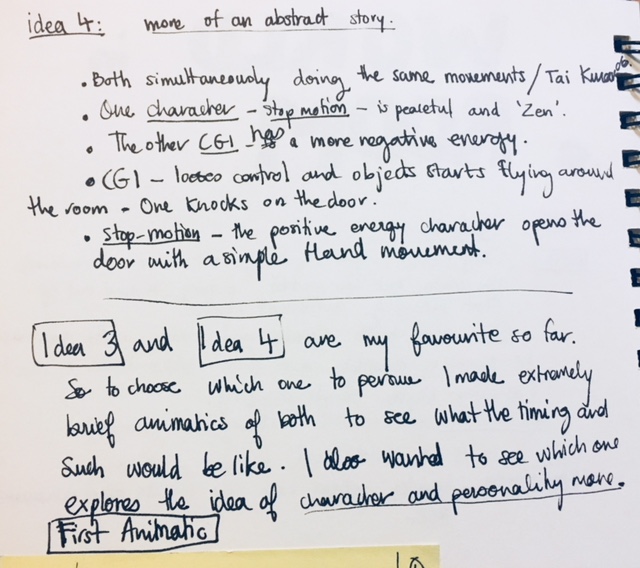 idea 4: more of an abstract story.
• Both simultaneously doing the same movements / Tai Kwando.
• One characher – stop motion – is peaceful and 'Zen'.
• The other CGI – has a more negative energy.
• CGI – looses control and objects starts flying around
the room – One knocks on the door.
• stop-motion – the positive energy characher opens the
door with a simple Hand movement.
Idea 3 and Idea 4 are my favourite so far.
So to choose which one to persue I made extremely
brief animatics of both to see what the timing and
such would be like. I also wanted to see which one
explores the idea of characher and personality more.
First Animatic